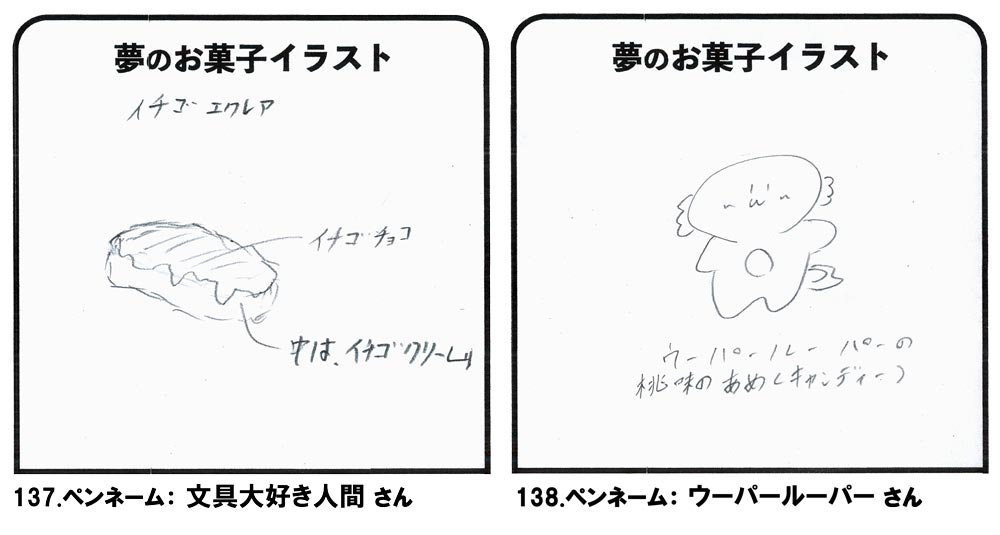 夢のお菓子イラスト
イチゴエクレア
イチゴチョコ
中は、イチゴクリーム
137.ペンネーム: 文具大好き人間 さん
夢のお菓子イラスト
ウーパールーパーの
桃味のあめ(キャンディー)
138.ペンネーム: ウーパールーパー さん